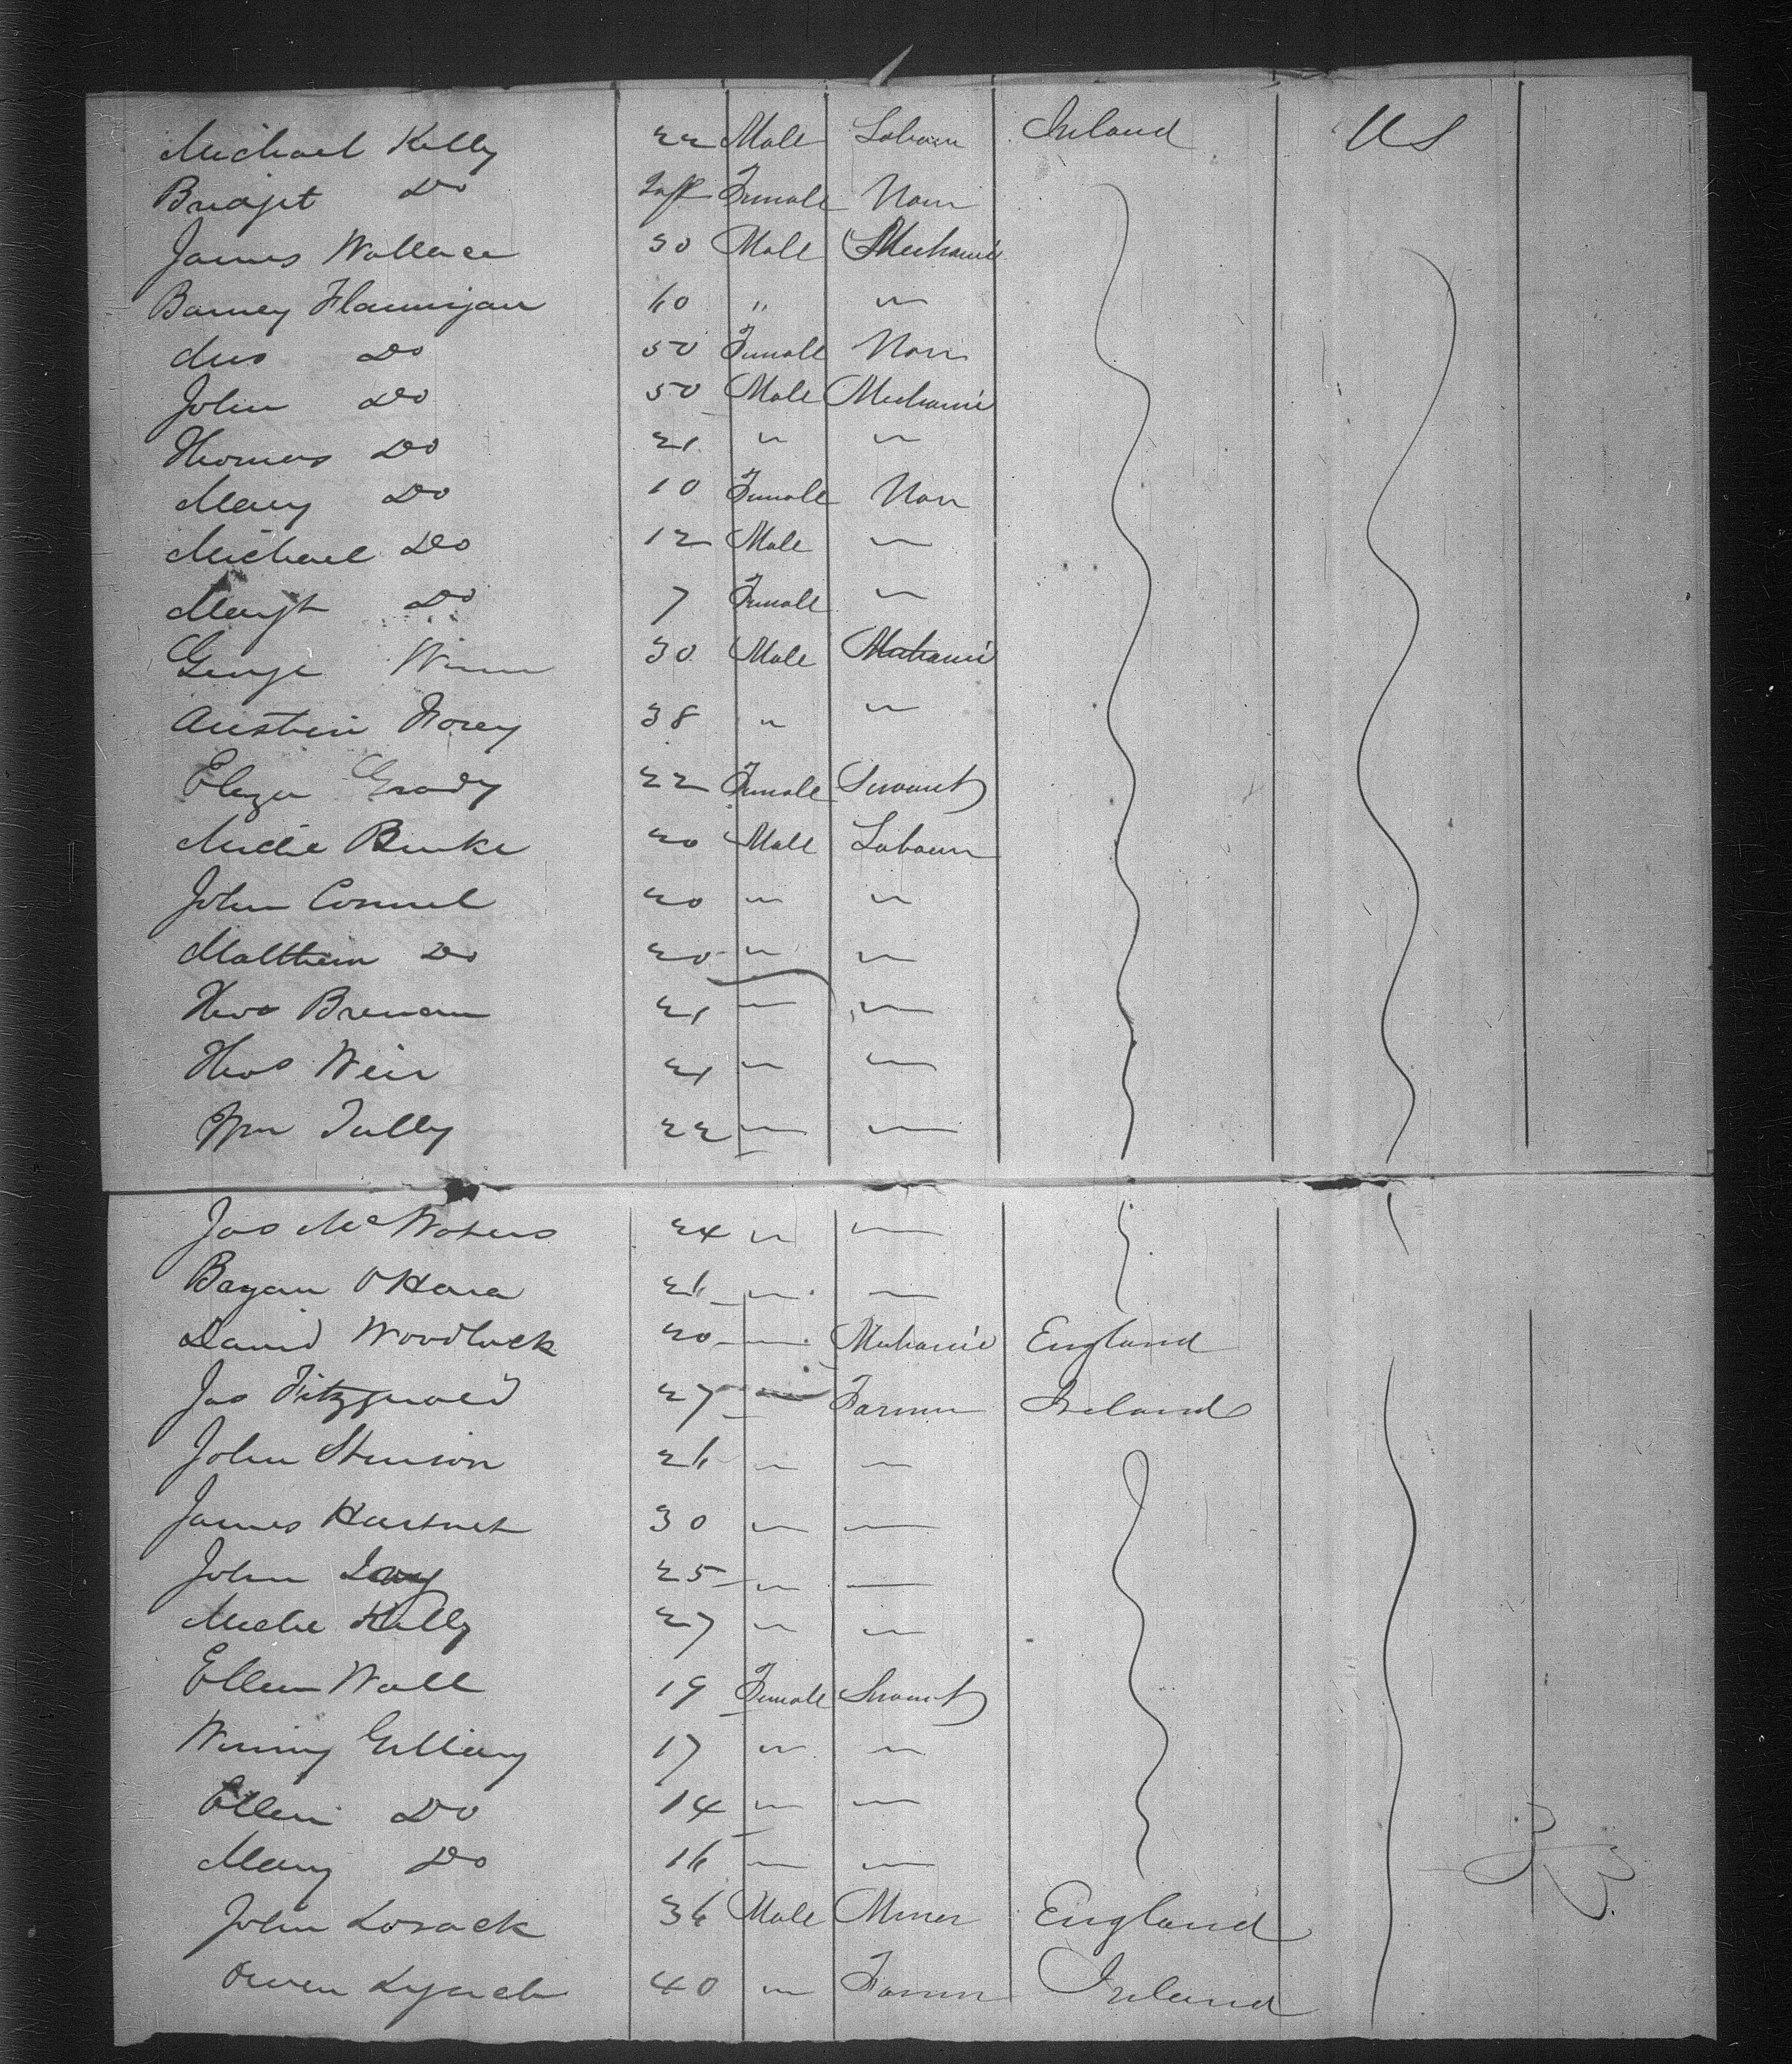 Michael Kelly 22 Male Labour Ireland US
Bridget Do Inft Female Non
James Wallace 30 Male Mechanic
Barney Flannigan 60 " "
Mrs Do 50 Female Non
John Do 50 Male Mechanic
Thomas Do 21 " "
Mary Do 10 Female Non
Michael Do 12 Male "
Margt Do 7 Female "
George Winn 30 Male Mechanic
Austin 38 " "
Eliza Grady 22 Female Servant
Miche Burke 20 Male Labour
John Connel 20 " "
Matthew Do 20 " "
Thos Brenan 21 " "
Thos Weir 21 " "
Wm Tully 22 " "
Jas Mc Waters 24 " "
Bryan OHara 26 " "
David Woodlock 20 " Mechanic England
Jas Fitzgerald 27 " Farmer Ireland
John Stenson 26 " "
James Hartnet 30 " "
John 25 " "
Miche Kelly 27 " "
Ellen Wall 19 Female Servant
Winny 17 " "
Ellen Do 14 " "
Mary Do 16 " "
John Losack 36 Male Miner England
Owen Lynch 40 " Farmer Ireland